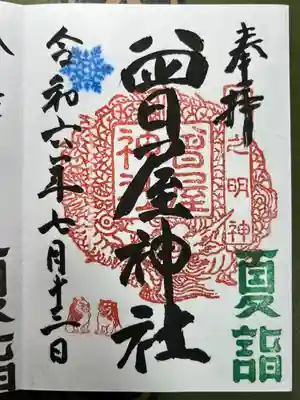 奉拝
曽屋神社
令和六年七月十三日
之明神
曽屋
神社
夏詣